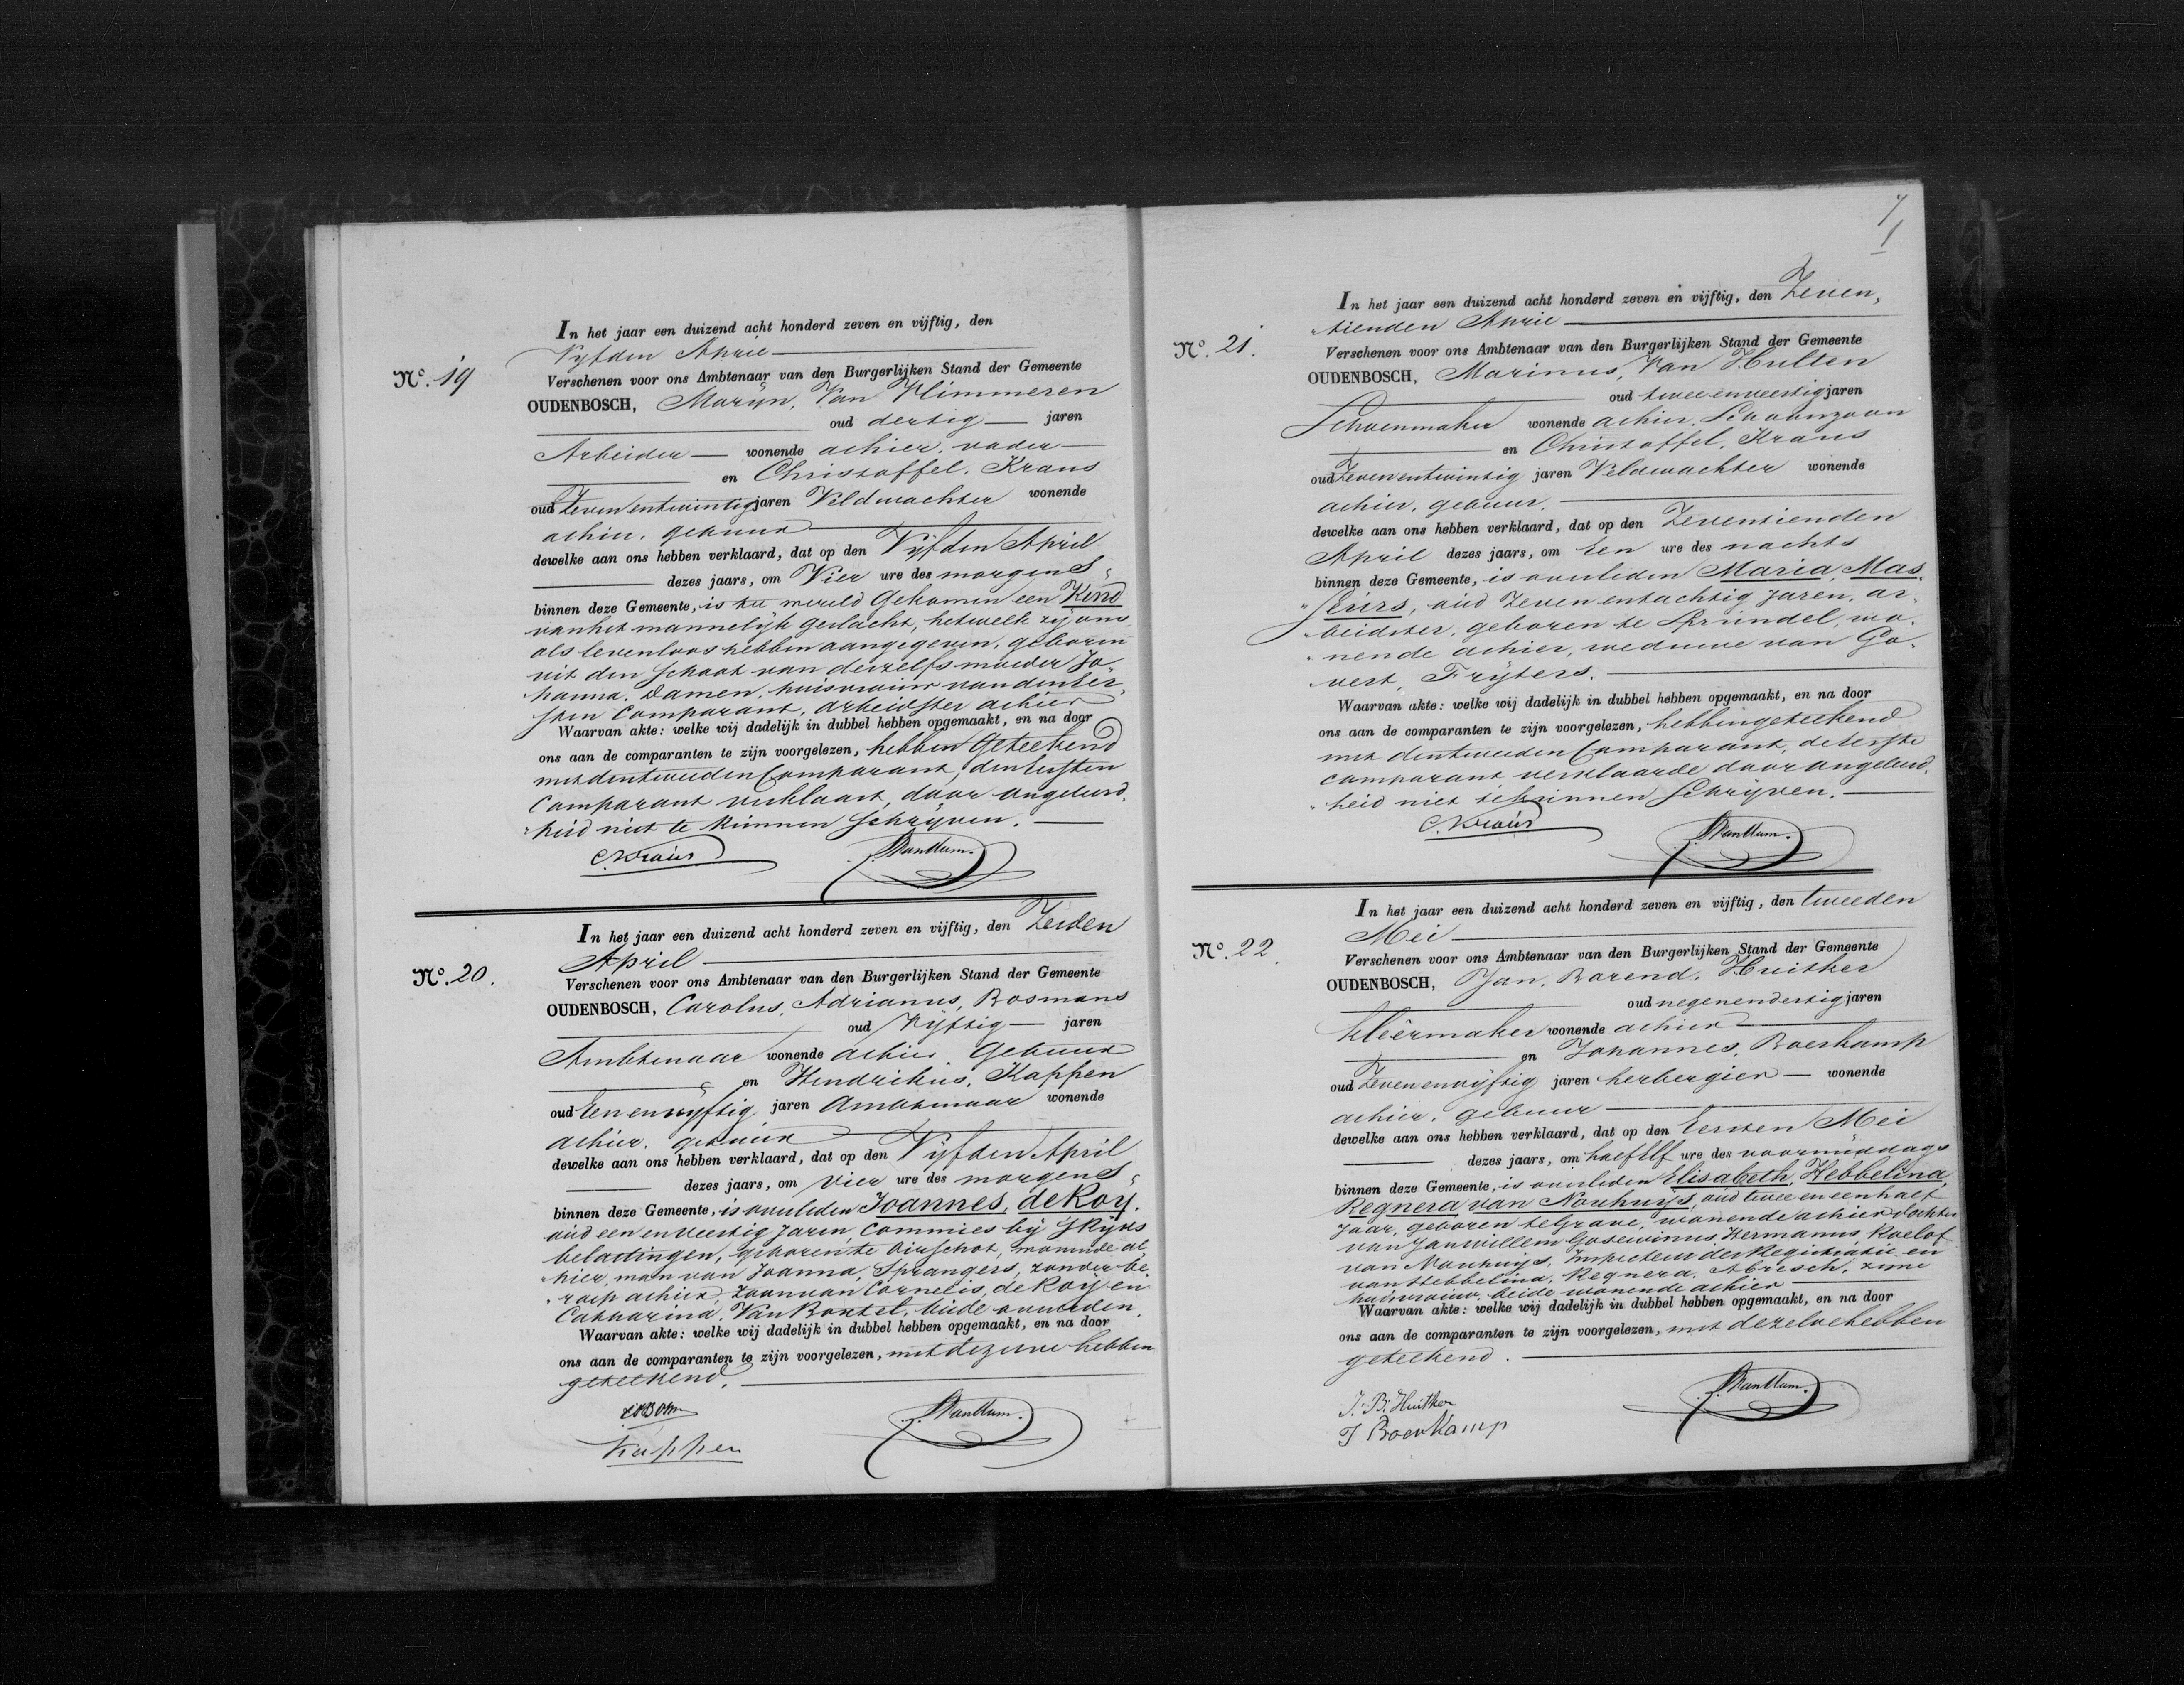 In het jaar een duizend acht honderd zeven en vijftig, den
Vyfden April
No. 19
Verschenen voor ons Ambtenaar van den Burgerlijken Stand der Gemeente
OUDENBOSCH, Marijn, Van Klimmeren
oud dertig jaren
Arbeider wonende alhier, vader
en Christoffel, Kraus
oud Zevenentwintig jaren Veldwachter wonende
alhier, gebuur
dewelke aan ons hebben verklaard, dat op den Vijfden April
dezes jaars, om Vier ure des morgens
binnen deze Gemeente, is ter wereld Gekomen een Kind
van het mannelijk geslacht, hetwelk zij ons
als levenloos hebben aangegeven, geboren
uit den schoot van deszelfs moeder Jo-
hanna, Damen, huisvrouw van den eer-
sten Comparant, arbeidster alhier
Waarvan akte: welke wij dadelijk in dubbel hebben opgemaakt, en na door
ons aan de comparanten te zijn voorgelezen, hebben Geteekend
met den tweeden Comparant, den eersten
Comparant verklaart, door ongeleerd-
heid niet te kunnen schrijven.
C. Kraus
No. 20.
In het jaar een duizend acht honderd zeven en vijftig, den Zesden
April
Verschenen voor ons Ambtenaar van den Burgerlijken Stand der Gemeente
OUDENBOSCH, Carolus, Adrianus, Bosmans
oud Vijftig jaren
Ambtenaar wonende alhier, Gebuur
en Hendrikus, Kappen
oud Eenenvijftig jaren Ambtenaar wonende
alhier, gebuur
dewelke aan ons hebben verklaard, dat op den Vijfden April
dezes jaars, om Vier ure des morgens
binnen deze Gemeente, is overleden Joannes, de Roy,
oud een en veertig Jaren, Commies bij 's Rijks
belastingen, geboren te Oirschot, wonende al-
hier, man van Joanna, Sprangers, zonder be-
roep alhier, Zoon van Cornelis, de Roy en
Catharina, Van Boxtel, beide overleden.
Waarvan akte: welke wij dadelijk in dubbel hebben opgemaakt, en na door
ons aan de comparanten te zijn voorgelezen, met dezelve hebben
geteekend.
Kappen
7
No. 21.
In het jaar een duizend acht honderd zeven en vijftig, den Zeven-
tienden April
Verschenen voor ons Ambtenaar van den Burgerlijken Stand der Gemeente
OUDENBOSCH, Marinus, Van Hulten
oud tweeenveertig jaren
Schoenmaker wonende alhier, Schoonzoon
en Christoffel, Kraus
oud Zevenentwintig jaren Veldwachter wonende
alhier, gebuur.
dewelke aan ons hebben verklaard, dat op den Zeventienden
April dezes jaars, om Een ure des nachts
binnen deze Gemeente, is overleden Maria, Mas-
seurs, oud Zeven entachtig Jaren, ar-
beidster, geboren te Sprundel, wo-
nende alhier, weduwe van Go-
vert, Frijters.
Waarvan akte: welke wij dadelijk in dubbel hebben opgemaakt, en na door
ons aan de comparanten te zijn voorgelezen, hebben geteekend
met den tweeden Comparant, de eerste
comparant verklaarde door ongeleerd-
heid niet te kunnen Schrijven.
C. Kraus
No. 22.
In het jaar een duizend acht honderd zeven en vijftig, den tweeden
Mei
Verschenen voor ons Ambtenaar van den Burgerlijken Stand der Gemeente
OUDENBOSCH, Jan, Barend, Huitker
oud negenendertig jaren
kleêrmaker wonende alhier
en Johannes, Boerkamp
oud Zevenenvijftig jaren herbergier wonende
alhier, gebuur
dewelke aan ons hebben verklaard, dat op den Eersten Mei
dezes jaars, om half Elf ure des voormiddags
binnen deze Gemeente, is overleden Elisabeth, Hebbelina,
Regnera van Nouhuijs, oud twee en een half
Jaar, geboren te Grave, wonende alhier dochter
van Jan willem Gosewinus Hermanus Roelof
van Nouhuijs, Inspecteur der Registratie en
van Hebbelina, Regnera, Abresch, zijne
huisvrouw, beide wonende alhier
Waarvan akte: welke wij dadelijk in dubbel hebben opgemaakt, en na door
ons aan de comparanten te zijn voorgelezen, met dezelve hebben
geteekend.
J. B. Huitker
J Boerkamp